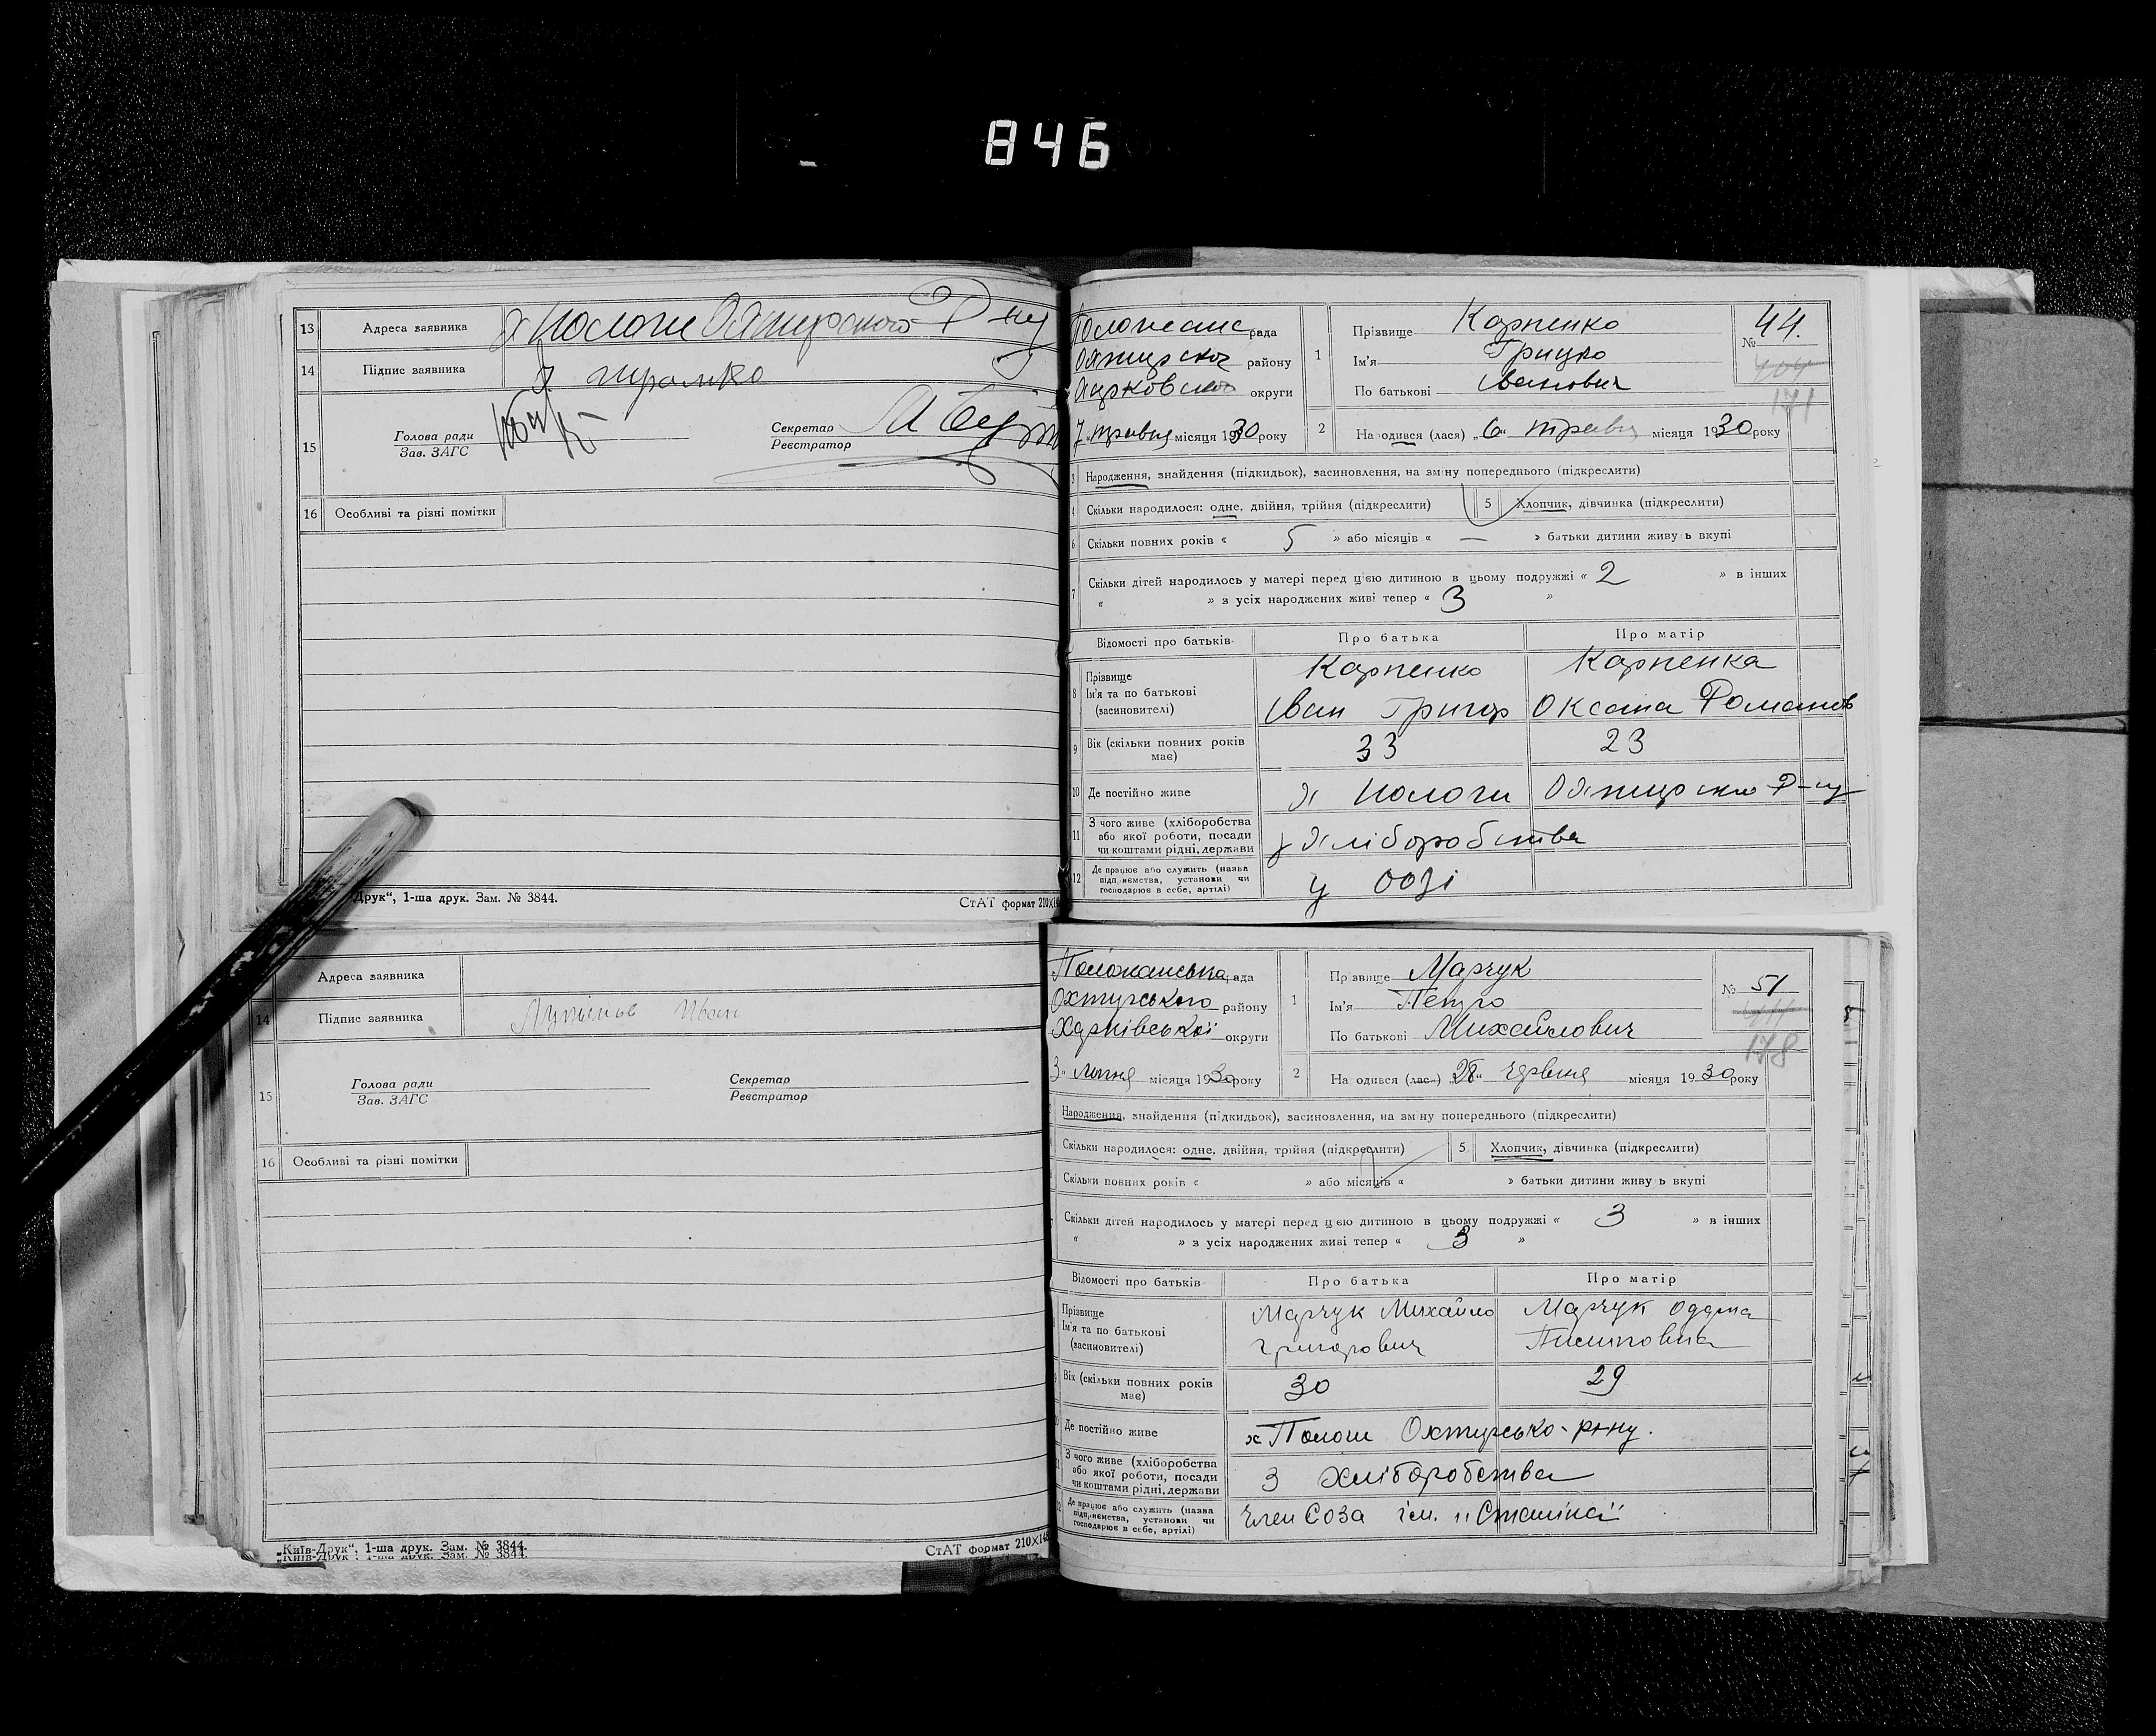 846
13 Адреса заявника х Пологи Охтирського Р-ну
14 Підпис заявника
15 Голова ради
Зав. ЗАГС
Секретар
Реєстратор
16 Особливі та різні помітки
Друк“, 1-ша друк. Зам. № 3844.
СтАТ формат 210×14
рада
району
округи
7 травня місяця 1930 року
1 Прізвище Карпенко
Ім'я Грицко
По батькові Іванович
№ 44.
171
2 Народився (лася) „6“ травня місяця 1930 року
3 Народження, знайдення (підкидьок), засиновлення, на зміну попереднього (підкреслити)
4 Скільки народилося: одне, двійня, трійня (підкреслити) 5 Хлопчик, дівчинка (підкреслити)
6 Скільки повних років « 5 » або місяців « — » батьки дитини живуть вкупі
7 Скільки дітей народилось у матері перед цією дитиною в цьому подружжі « 2 » в інших
« » з усіх народжених живі тепер « 3 »
Відомості про батьків Про батька Про матір
8 Прізвище Карпенко Карпенка
Ім'я та по батькові Іван Григор Оксана Романов
(засиновителі)
9 Вік (скільки повних років має) 33 23
10 Де постійно живе х Пологи Охтирсько Р-ну
11 З чого живе (хліборобства
або якої роботи, посади
чи коштами рідні, держави з хліборобства
12 Де працює або служить (назва
підприємства, установи чи
господарює в себе, артілі) у созі
Адреса заявника
14 Підпис заявника Іван
15 Голова ради
Зав. ЗАГС
Секретар
Реєстратор
16 Особливі та різні помітки
„Київ-Друк“, 1-ша друк. Зам. № 3844.
СтАТ формат 210×148
Положанська рада
Охтирського району
Харківської округи
3“ липня місяця 1930 року
1 Прізвище Марчук
Ім'я Петро
По батькові Михайлович
№ 51
178
2 Народився (лася) „28“ червня місяця 1930 року
Народження, знайдення (підкидьок), засиновлення, на зміну попереднього (підкреслити)
Скільки народилося: одне, двійня, трійня (підкреслити) 5 Хлопчик, дівчинка (підкреслити)
Скільки повних років « » або місяців « » батьки дитини живуть вкупі
Скільки дітей народилось у матері перед цією дитиною в цьому подружжі « 3 » в інших
« » з усіх народжених живі тепер « 3 »
Відомості про батьків Про батька Про матір
Прізвище Марчук Михайло Марчук Одарка
Ім'я та по батькові Григорович
(засиновителі)
Вік (скільки повних років має) 30 29
Де постійно живе х Пологи Охтирсько-р-ну.
З чого живе (хліборобства
або якої роботи, посади
чи коштами рідні, держави З хліборобства
Де працює або служить (назва
підприємства, установи чи
господарює в себе, артілі) Член Соза ім. „Сталіна“